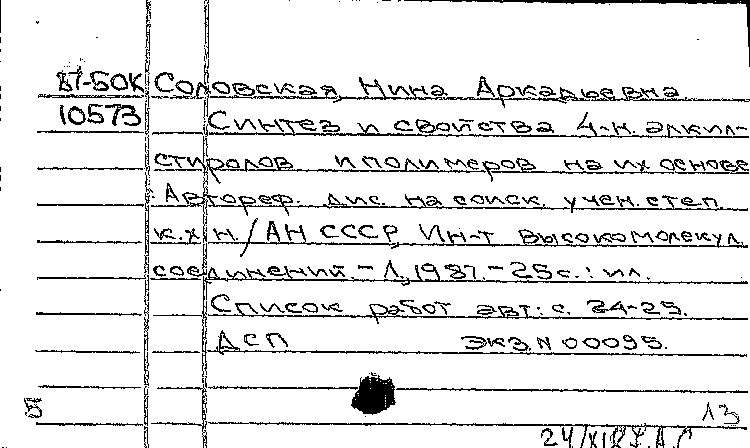 87-50К Соловская, Нина Аркадьевна
10573 Синтез и свойства 4-н. алкил-
стиролов и полимеров на их основе
: Автореф. дис. на соиск. учен. степ.
к.х.н. / АН СССР, Ин-т высокомолекул.
соединений. - Л., 1987. - 25 с. : ил.
Список работ авт.: с. 24-25.
ДСП ЭКЗ. N 00095.
5 13